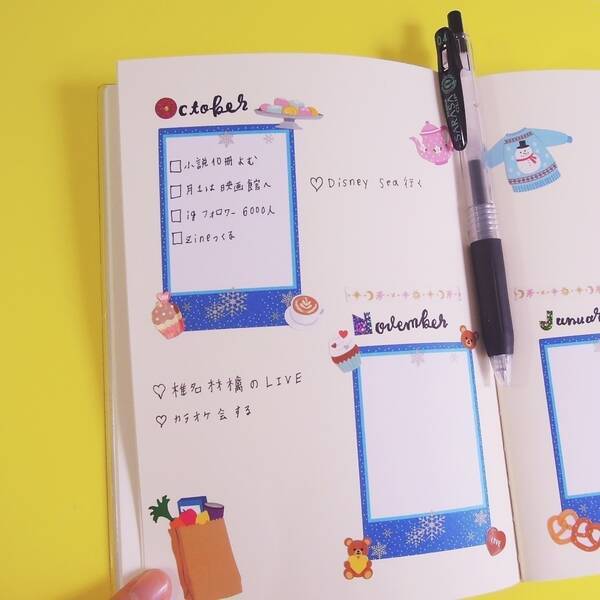 October
小説10冊よむ
月1は映画館へ
ig フォロワー 6000人
zineつくる
♡ Disney Sea 行く
November
♡ 椎名林檎のLIVE
♡ カラオケ会する
Januar
SARASA
LOVE